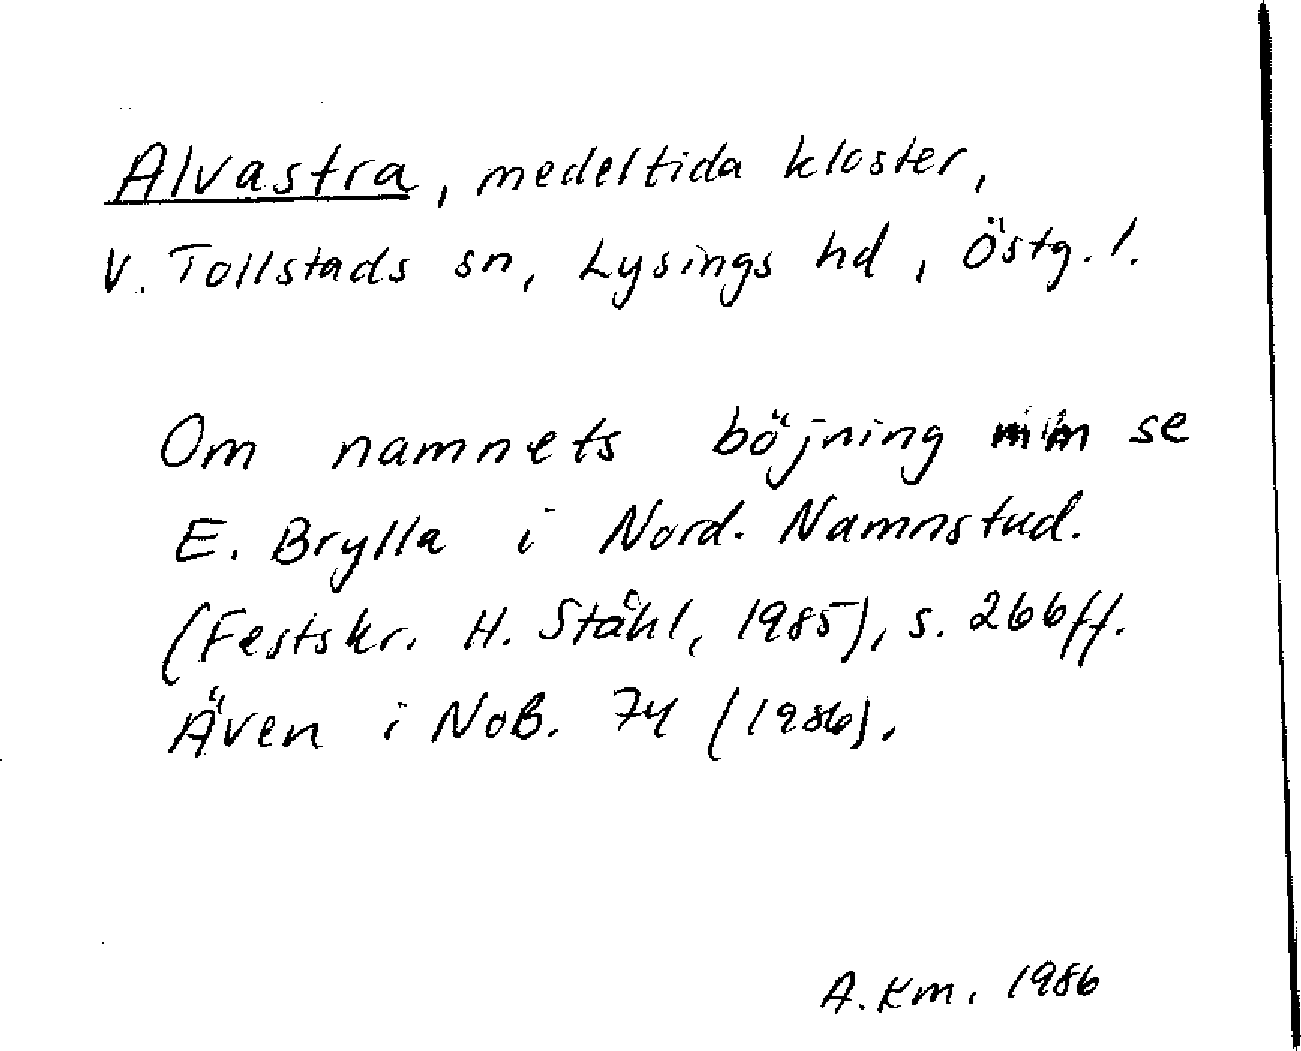 Alvastra, medeltida kloster,
V. Tollstads sn, Lysings hd, Östg. l.
Om namnets böjning mm se
E. Brylla i Nord. Namnstud.
(Festskr. H. Ståhl, 1985), s. 266ff.
Även i NoB. 74 (1986).
A. Km. 1986